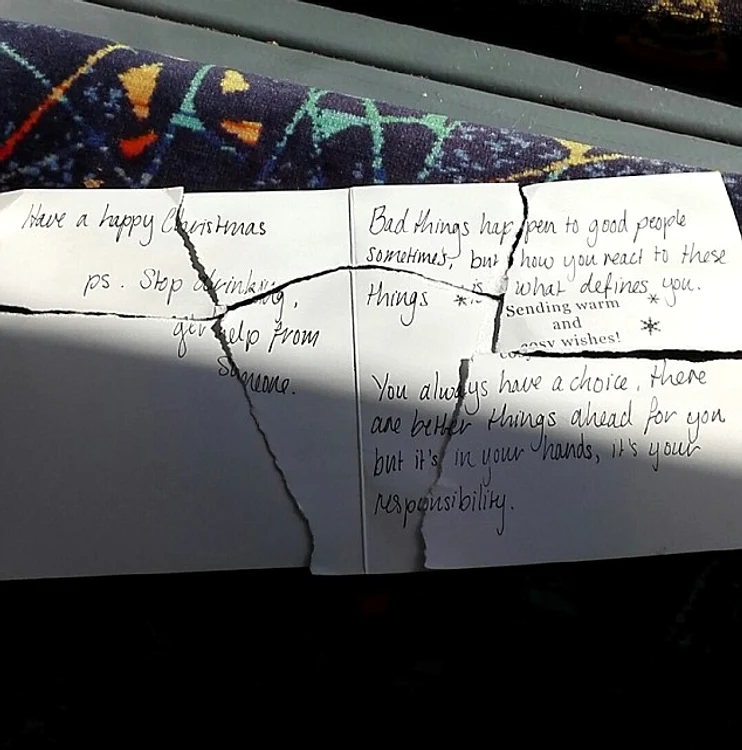 Have a happy Christmas
ps. Stop drinking,
get help from
someone.
Bad things happen to good people
sometimes, but how you react to these
things is what defines you.
Sending warm
and
cosy wishes!
You always have a choice, there
are better things ahead for you
but it's in your hands, it's your
responsibility.